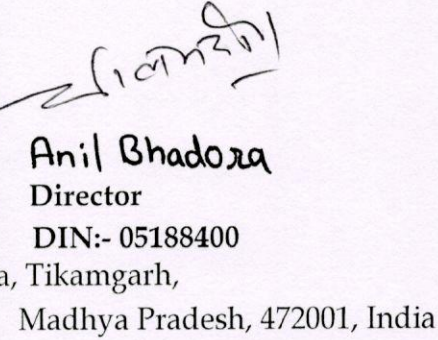 Anil Bhadora
Director
DIN:- 05188400
a, Tikamgarh,
Madhya Pradesh, 472001, India